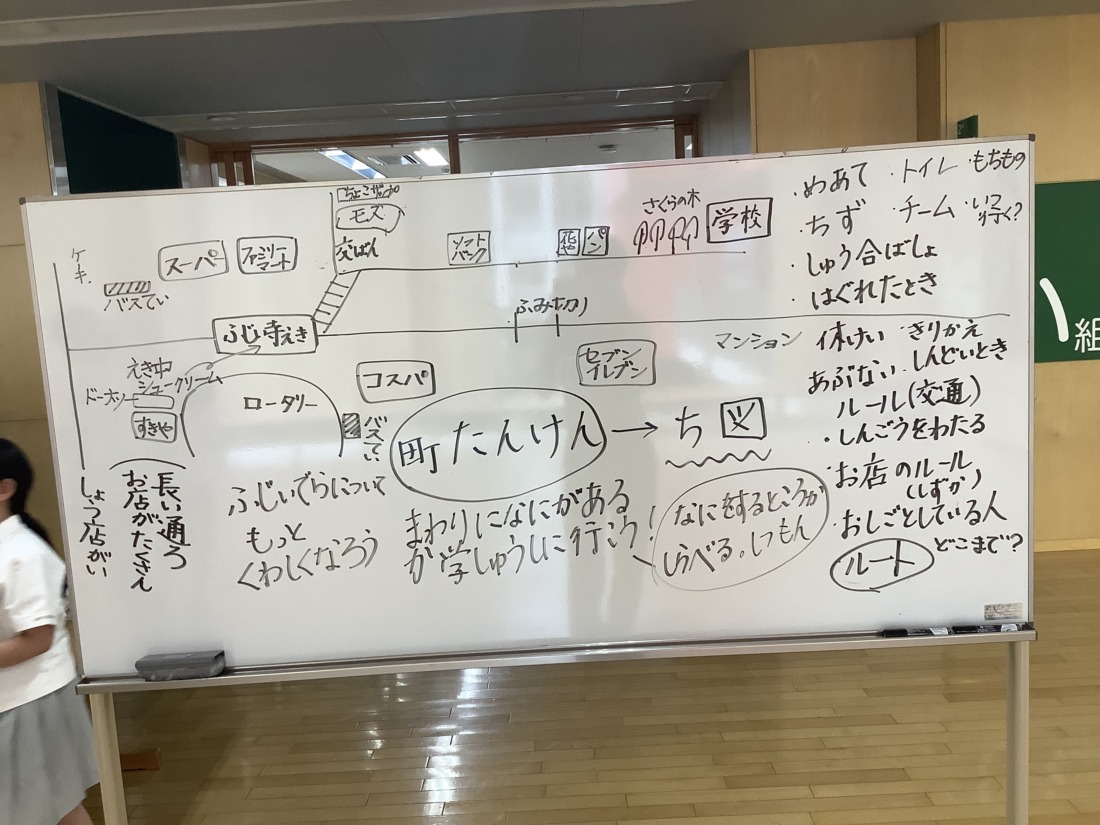 ちょこザップ
モズ
交ばん
ケーキ
スーパー
ファミリー
マート
バスてい
ソフト
バンク
花や
パン
さくらの木
学校
ふみ切り
ふじ寺えき
えき中
シュークリーム
ドーナツ
すきや
ロータリー
バスてい
コスパ
セブン
イレブン
マンション
町たんけん→ち図
しょう店がい
お店がたくさん
長い通ろ
ふじいでらについて
もっと
くわしくなろう
まわりになにがある
か学しゅうしに行こう!
なにをするところか
しらべる。しつもん
・めあて
・トイレ
・もちもの
・ちず
・チーム
・いつ
行く?
・しゅう合ばしょ
・はぐれたとき
休けい
・きりかえ
あぶない
・しんどいとき
ルール(交通)
・しんごうをわたる
・お店のルール
(しずか)
・おしごとしている人
ルート
どこまで?
組